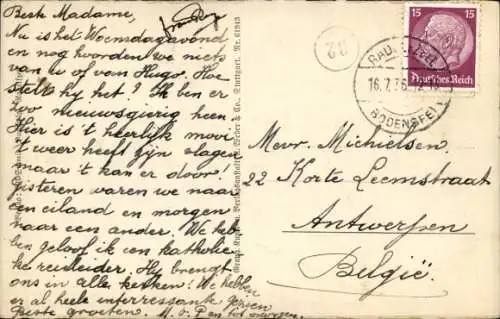 Beste Madame,
Nu is het Woensdagavond
en nog hoorden we niets
van u of van Hugo. Hoe
stelt hij het? Ik ben er
zoo nieuwsgierig heen
Hier is 't heerlijk mooi
't weer heeft zijn vlagen
maar 't kan er door!
Gisteren waren we naar
een eiland en morgen
naar een ander. We heb-
ben geloof ik een katholie-
ke reisleider. Hij brengt
ons in alle kerken! We hebben
er al heele interressante gezien
Beste groeten.
15 15
Deutsches Reich
BODENSEE
Mevr. Michielsen.
22 Korte Leemstraat
Antwerpen
België.